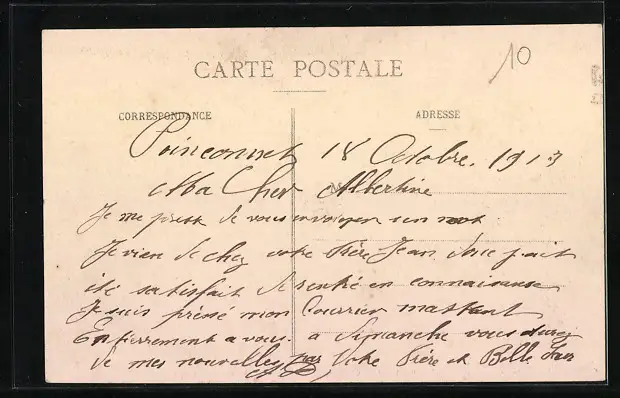 10
CARTE POSTALE
CORRESPONDANCE
ADRESSE
Poinconnet 18 Octobre. 1913
Ma Cher Albertine
Je me presse de vous envoyer un mot
Je vien de chez votre frère Jean
été satisfait de rentré en connaisance
Je suis pressé mon Courrier
Entierrement a vous. a Dimanche vous aurez
de mes nouvelles par Votre Frère et Belle